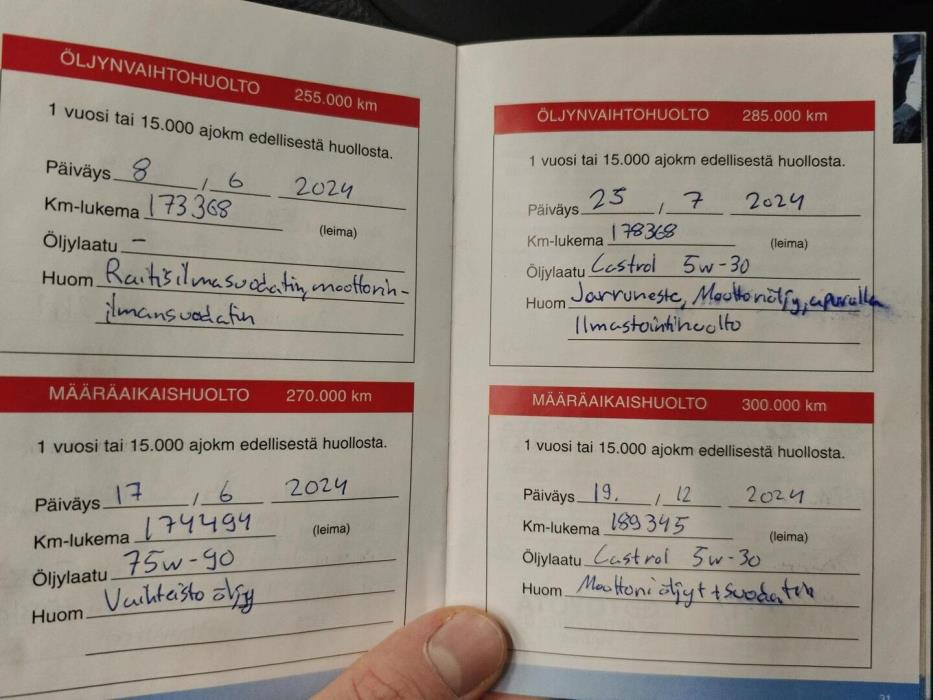 ÖLJYNVAIHTOHUOLTO 255.000 km
1 vuosi tai 15.000 ajokm edellisestä huollosta.
Päiväys 8 / 6 2024
Km-lukema 173368
(leima)
Öljylaatu –
Huom Raitisilmasuodatin, moottorin-
ilmansuodatin
MÄÄRÄAIKAISHUOLTO 270.000 km
1 vuosi tai 15.000 ajokm edellisestä huollosta.
Päiväys 17 / 6 2024
Km-lukema 174494
(leima)
Öljylaatu 75w-90
Huom Vaihteisto öljy
ÖLJYNVAIHTOHUOLTO 285.000 km
1 vuosi tai 15.000 ajokm edellisestä huollosta.
Päiväys 25 / 7 2024
Km-lukema 178368
(leima)
Öljylaatu Castrol 5w-30
Huom Jarruneste, Moottoriöljy,
Ilmastointihuolto
MÄÄRÄAIKAISHUOLTO 300.000 km
1 vuosi tai 15.000 ajokm edellisestä huollosta.
Päiväys 19. / 12 2024
Km-lukema 189345
(leima)
Öljylaatu Castrol 5w-30
Huom Moottoriöljyt + suodatin
31